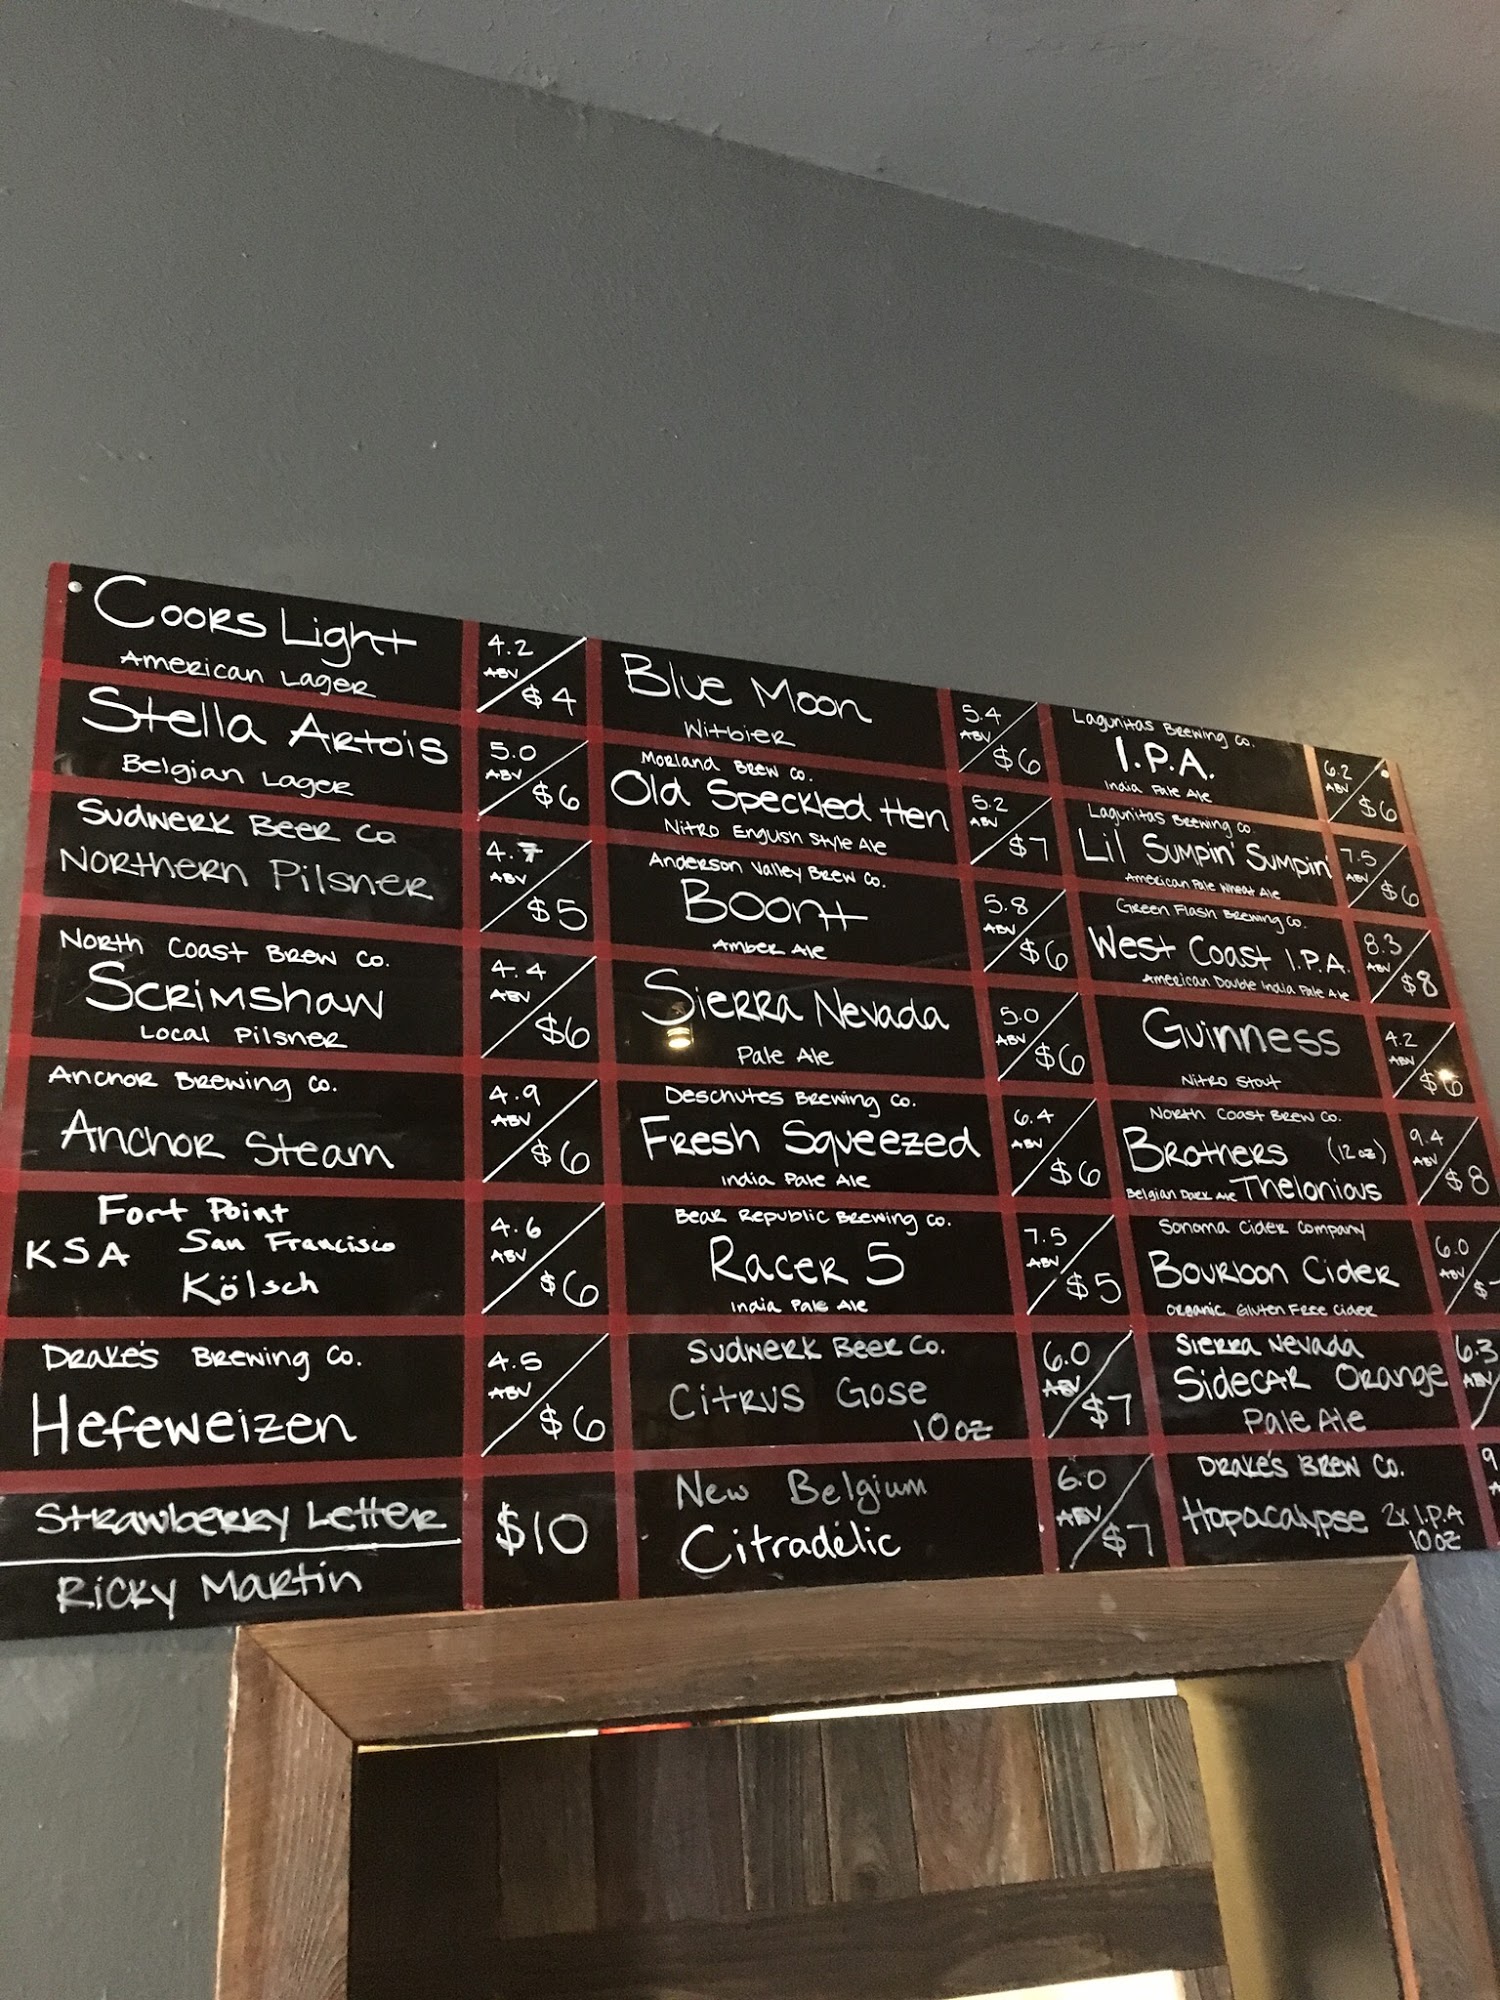 Coors Light
American Lager
4.2
ABV
$4
Stella Artois
Belgian Lager
5.0
ABV
$6
Sudwerk Beer Co
Northern Pilsner
4.7
ABV
$5
North Coast Brew Co.
Scrimshaw
Local Pilsner
4.4
ABV
$6
Anchor Brewing Co.
Anchor Steam
4.9
ABV
$6
Fort Point
KSA San Francisco
Kölsch
4.6
ABV
$6
Drake's Brewing Co.
Hefeweizen
4.5
ABV
$6
Strawberry Letter
Ricky Martin
$10
Blue Moon
Witbier
5.4
ABV
$6
Morland Brew Co.
Old Speckled Hen
Nitro English Style Ale
5.2
ABV
$7
Anderson Valley Brew Co.
Boont
Amber Ale
5.8
ABV
$6
Sierra Nevada
Pale Ale
5.0
ABV
$6
Deschutes Brewing Co.
Fresh Squeezed
India Pale Ale
6.4
ABV
$6
Bear Republic Brewing Co.
Racer 5
India Pale Ale
7.5
ABV
$5
Sudwerk Beer Co.
Citrus Gose
10 oz
6.0
ABV
$7
New Belgium
Citradelic
6.0
ABV
$7
Lagunitas Brewing Co.
I.P.A.
India Pale Ale
6.2
ABV
$6
Lagunitas Brewing Co.
Lil Sumpin' Sumpin'
American Pale Wheat Ale
7.5
ABV
$6
Green Flash Brewing Co.
West Coast I.P.A.
American Double India Pale Ale
8.3
ABV
$8
Guinness
Nitro Stout
4.2
ABV
$6
North Coast Brew Co.
Brothers (12 oz)
Belgian Dark Ale Thelonious
9.4
ABV
$8
Sonoma Cider Company
Bourbon Cider
Organic Gluten Free Cider
6.0
ABV
$
Sierra Nevada
Sidecar Orange
Pale Ale
6.3
ABV
Drake's Brew Co.
Hopocalypse 2x I.P.A
10 oz
9